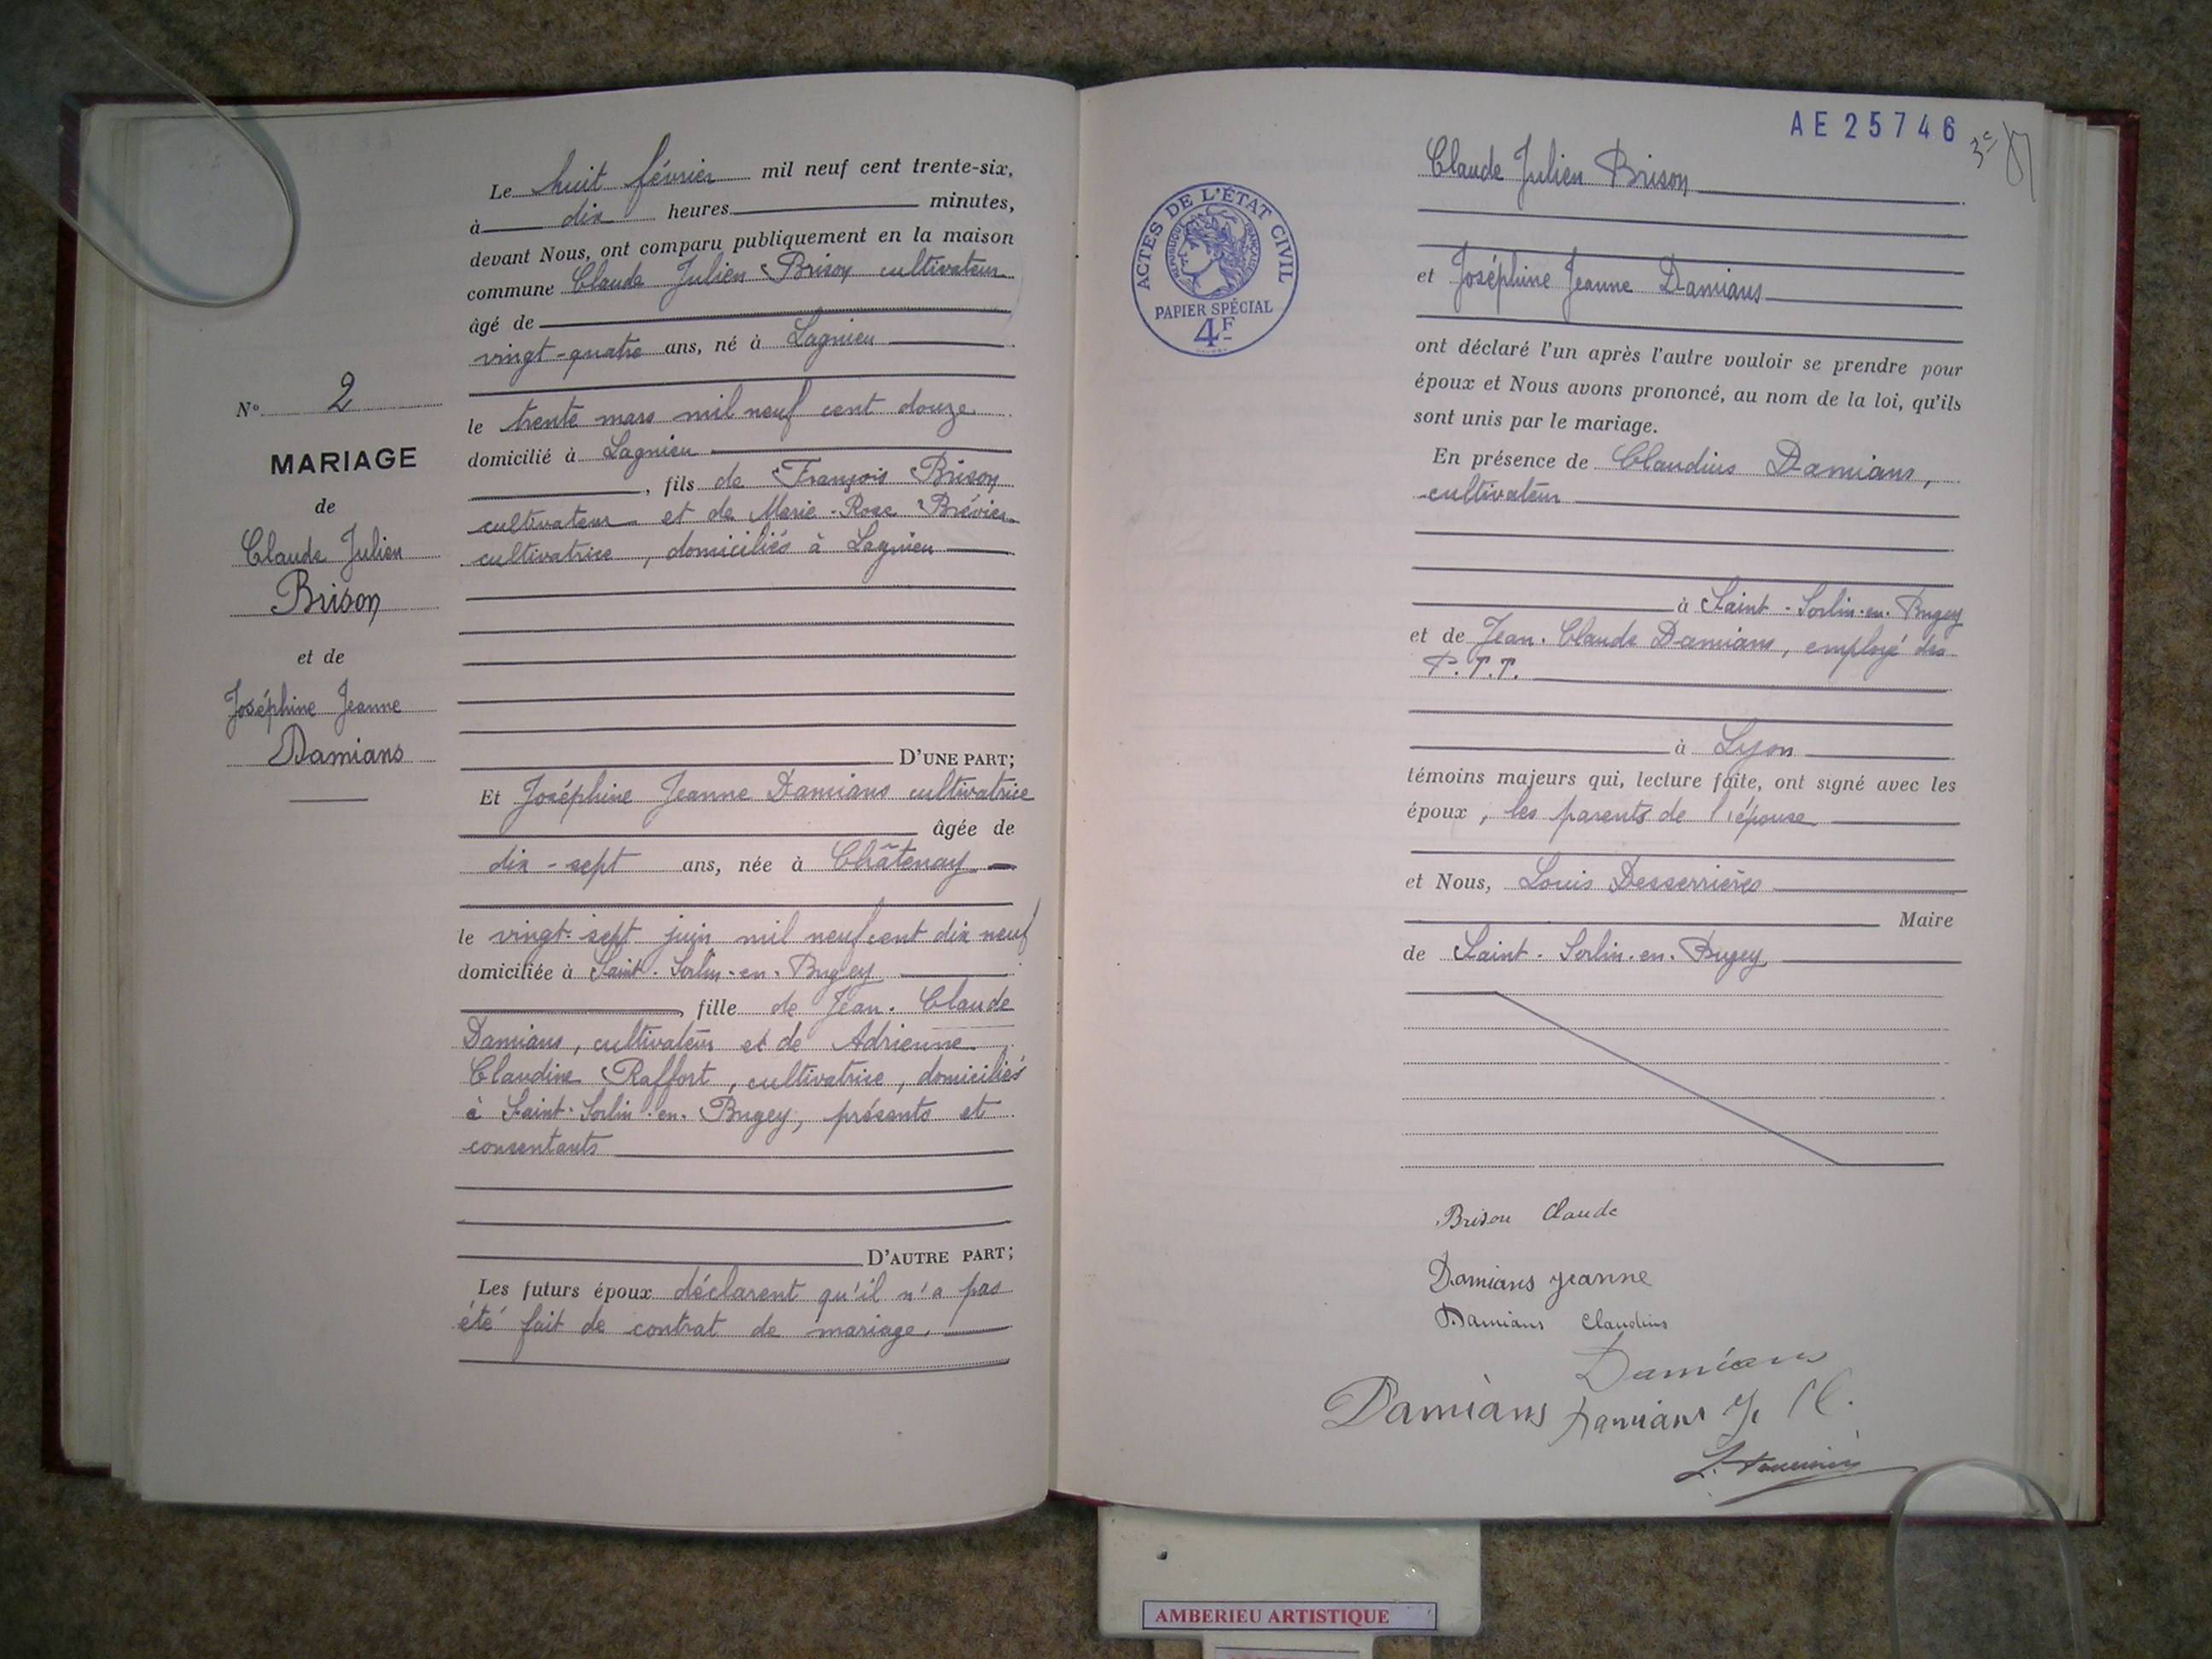 N° 2
MARIAGE
de
Claude Julien
Brison
et de
Joséphine Jeanne
Damians
Le huit février mil neuf cent trente-six,
à dix heures minutes,
devant Nous, ont comparu publiquement en la maison
commune Claude Julien Brison cultivateur
âgé de
vingt-quatre ans, né à Lagnieu
le trente mars mil neuf cent douze
domicilié à Lagnieu
, fils de François Brison
cultivateur et de Marie-Rose Brévier
cultivatrice, domiciliés à Lagnieu
D'UNE PART;
Et Joséphine Jeanne Damians cultivatrice
âgée de
dix-sept ans, née à Châtenay
le vingt-sept juin mil neuf cent dix neuf
domiciliée à Saint-Sorlin-en-Bugey
, fille de Jean-Claude
Damians, cultivateur et de Adrienne
Claudine Raffort, cultivatrice, domiciliés
à Saint-Sorlin-en-Bugey, présents et
consentants
D'AUTRE PART;
Les futurs époux déclarent qu'il n'a pas
été fait de contrat de mariage.
AE25746
3e
ACTES DE L'ÉTAT CIVIL
RÉPUBLIQUE FRANÇAISE
PAPIER SPÉCIAL
4F
Claude Julien Brison
et Joséphine Jeanne Damians
ont déclaré l'un après l'autre vouloir se prendre pour
époux et Nous avons prononcé, au nom de la loi, qu'ils
sont unis par le mariage.
En présence de Claudius Damians,
cultivateur
à Saint-Sorlin-en-Bugey
et de Jean-Claude Damians, employé des
P.T.T.
à Lyon
témoins majeurs qui, lecture faite, ont signé avec les
époux, les parents de l'épouse
et Nous, Louis Desserrières
Maire
de Saint-Sorlin-en-Bugey
Brison Claude
Damians Jeanne
Damians Claudius
Damians
Damians Damians J. Cl.
AMBERIEU ARTISTIQUE